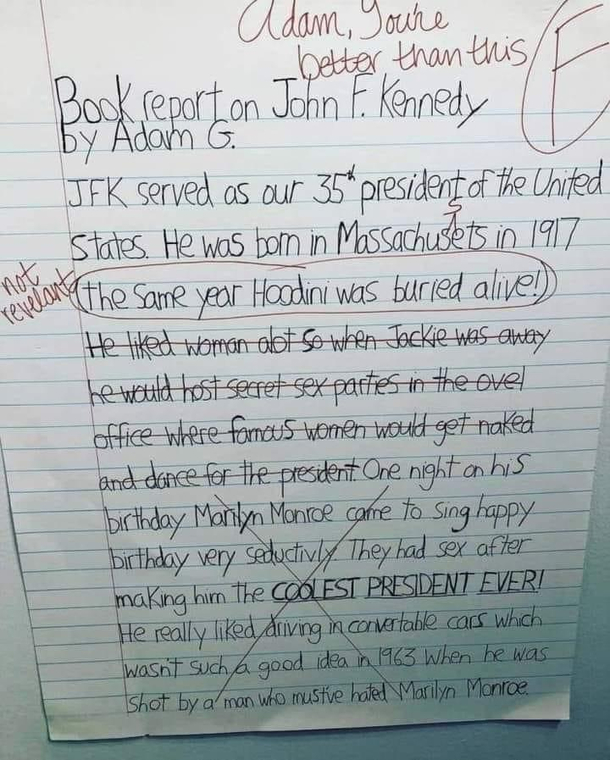 Adam, You're
better than this
F
Book report on John F. Kennedy
by Adam G.
JFK served as our 35th president of the United
s
States. He was born in Massachusets in 1917
not
revelant
(the same year Hoodini was buried alive!)
He liked woman alot so when Jackie was away
he would host secret sex parties in the ovel
office where famous women would get naked
and dance for the president. One night on his
birthday Marilyn Monroe came to sing happy
birthday very seductivly. They had sex after
making him the COOLEST PRESIDENT EVER!
He really liked driving in convertable cars which
wasn't such a good idea in 1963 when he was
shot by a man who must've hated Marilyn Monroe.